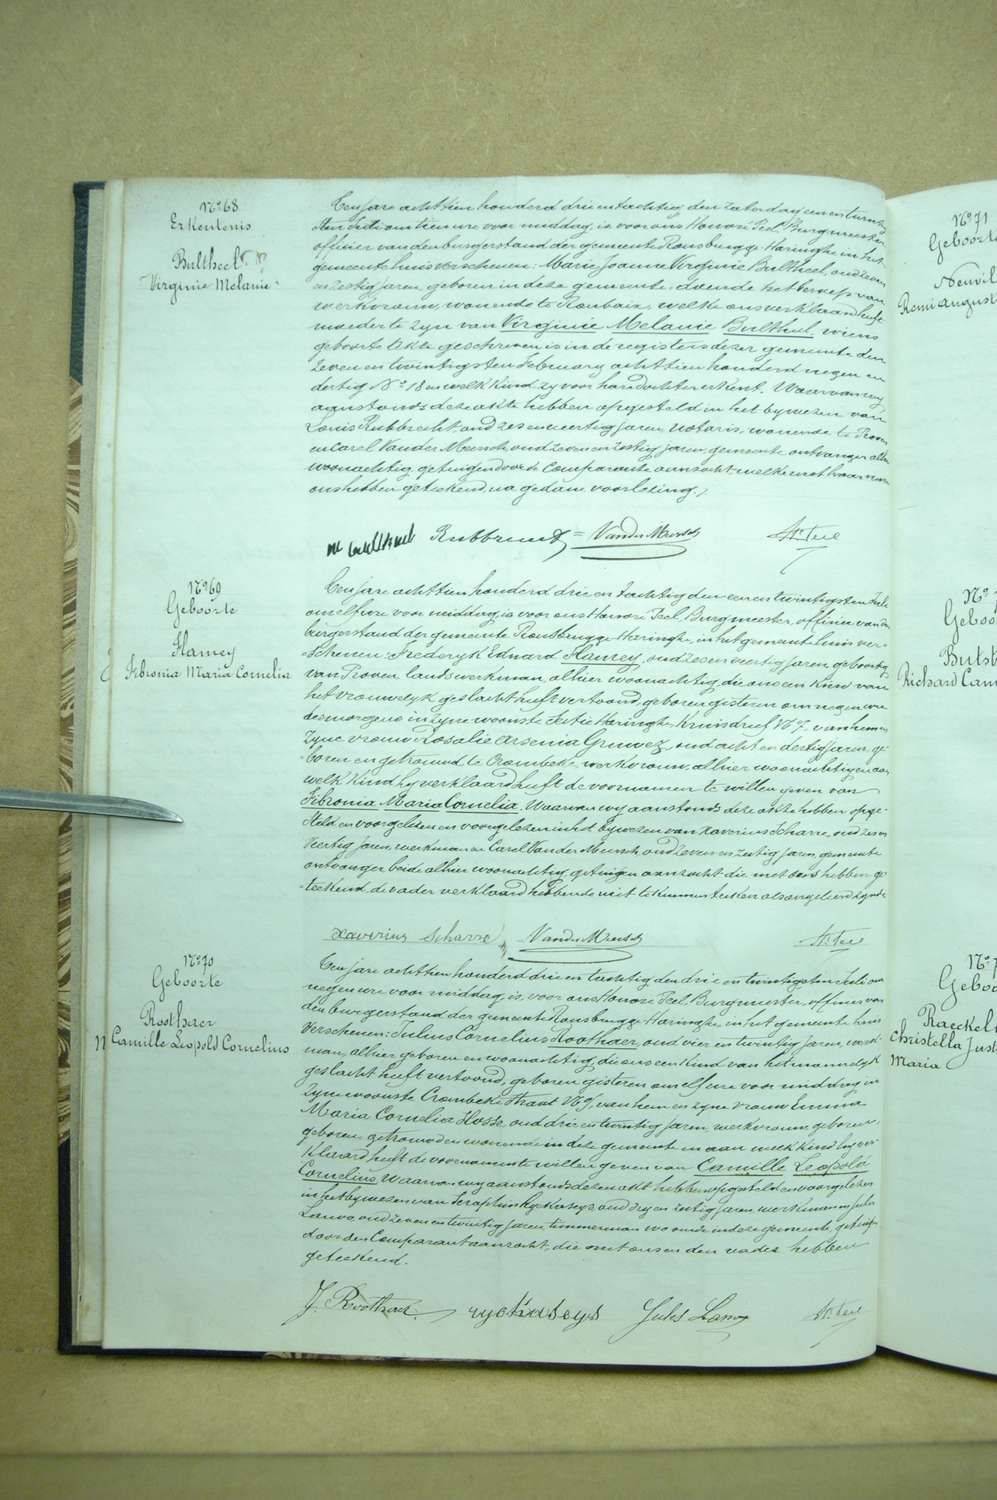 N° 68
Erkentenis
Bultheel
Virginie Melanie
Ten jare achttien honderd drie en tachtig den zaterdag een en twintig
July om tien ure voor middag, is voor ons Honoré Teel, Burgmeester
officier van den burgerstand der gemeente Rousbrugge Haringhe in het
gemeentehuis verschenen: Marie Joanne Virginie Bultheel, oud zeven
en zestig jaren, geboren in deze gemeente, doende het beroep van
werkvrouw, wonende te Roubaix, welke ons verklaard heeft
moeder te zyn van Virginie Melanie Bultheel, wiens
geboorte akte geschreven is in de registers dezer gemeente den
zeven en twintigsten February achttien honderd negen en
dertig N° 18 en welk kind zy voor hare dochter erkent. Waarvan wy
aanstonds deze akte hebben opgesteld in het bywezen van
Louis Rubbrecht, oud zes en veertig jaren, notaris, wonende te Proven
en Carel Vander Meersch oud zeven en zestig jaren, gemeente ontvanger alhier
woonachtig, getuigen door de Comparante aanzocht, welke met haar en
ons hebben geteekend, na gedane voorlezing.
m bultheel Rubbrecht Vander Meersch H. Teel
N° 69
Geboorte
Flamey
Fibronia Maria Cornelia
Ten jare achttien honderd drie en tachtig den een en twintigsten July
om elf ure voor middag, is voor ons Honoré Teel, Burgmeester, officier van den
burgerstand der gemeente Rousbrugge Haringhe, in het gemeente huis ver-
schenen: Frederyk Eduard Flamey, oud zeven en veertig jaren, geboortig
van Proven, landswerkman, alhier woonachtig, die ons een kind van
het vrouwelyk geslacht heeft vertoond, geboren gisteren om negen ure
des morgens in zyne woonste Sectie Haringhe Kruisdreef N° 7, van hem en
zyne vrouw Rosalie Arsenia Gruwez, oud acht en dertig jaren, ge-
boren en getrouwd te Crombeke, werkvrouw, alhier woonachtig en aan
welk kind hy verklaard heeft de voornamen te willen geven van
Fibronia Maria Cornelia. Waarvan wy aanstonds deze akte hebben opge-
steld en voorgelezen in het bywezen van Xaverius Scharre, oud zes en
veertig jaren, werkman en Carel Vander Meersch, oud zeven en zestig jaren, gemeente
ontvanger, beide alhier woonachtig, getuigen aanzocht die met ons hebben ge-
teekend, de vader verklaard hebbende niet te kunnen teeken als ongeleerd zynde
Xaverius Scharre Vander Meersch H. Teel
N° 70
Geboorte
Roothaer
Camille Leopold Cornelius
Ten jare achttien honderd drie en tachtig den drie en twintigsten July om
negen ure voor middag, is voor ons Honoré Teel, Burgmeester, officier van
den burgerstand der gemeente Rousbrugge Haringhe, in het gemeente huis
verschenen: Julius Cornelius Roothaer, oud vier en twintig jaren, werk-
man, alhier geboren en woonachtig, die ons een kind van het mannelyk
geslacht heeft vertoond, geboren gisteren om elf ure voor middag in
zyne woonste Crombekestraat N° 8, van hem en zyne vrouw Emma
Maria Cornelia Hosse, oud drie en twintig jaren, werkvrouw, geboren
geboren, getrouwd en wonende in deze gemeente en aan welk kind hy ver-
klaard heeft de voornamen te willen geven van Camille Leopold
Cornelius. Waarvan wy aanstonds deze akt hebben opgesteld en voorgelezen
in het bywezen van Seraphin Ryckaseys, oud dry en zestig jaren, werkman en Jules
Lanoo, oud zeven en twintig jaren, timmerman, wonende in deze gemeente, getuigen
door den Comparant aanzocht, die met ons en den vader hebben
geteekend.
J. Roothaer ryckaseys Jules Lanoo H. Teel
N° 71
Geboorte
Remi August
Geboo
Richard Cam
Geboo
Christella Just
Maria